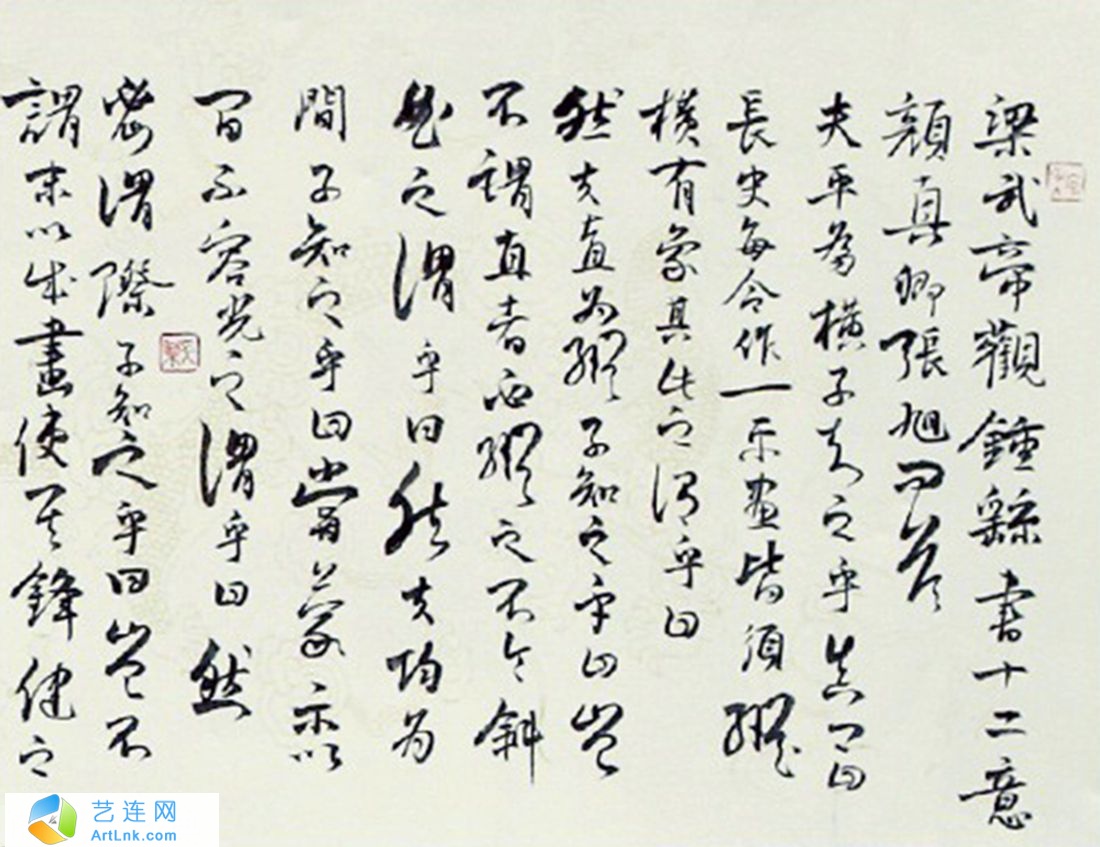 梁武帝觀鍾繇書十二意
顏真卿張旭問答
夫平為橫子知之乎真卿曰
長史每令作一平畫皆須縱
橫有象其此之謂乎曰
然夫直為縱子知之乎曰豈
不謂直者必縱之不令斜
曲之謂乎曰然夫均為
間子知之乎曰嘗蒙示以
間不容光之謂乎曰然
密謂際子知之乎曰豈不
謂末以成畫使其鋒健之
艺连网
ArtLnk.com